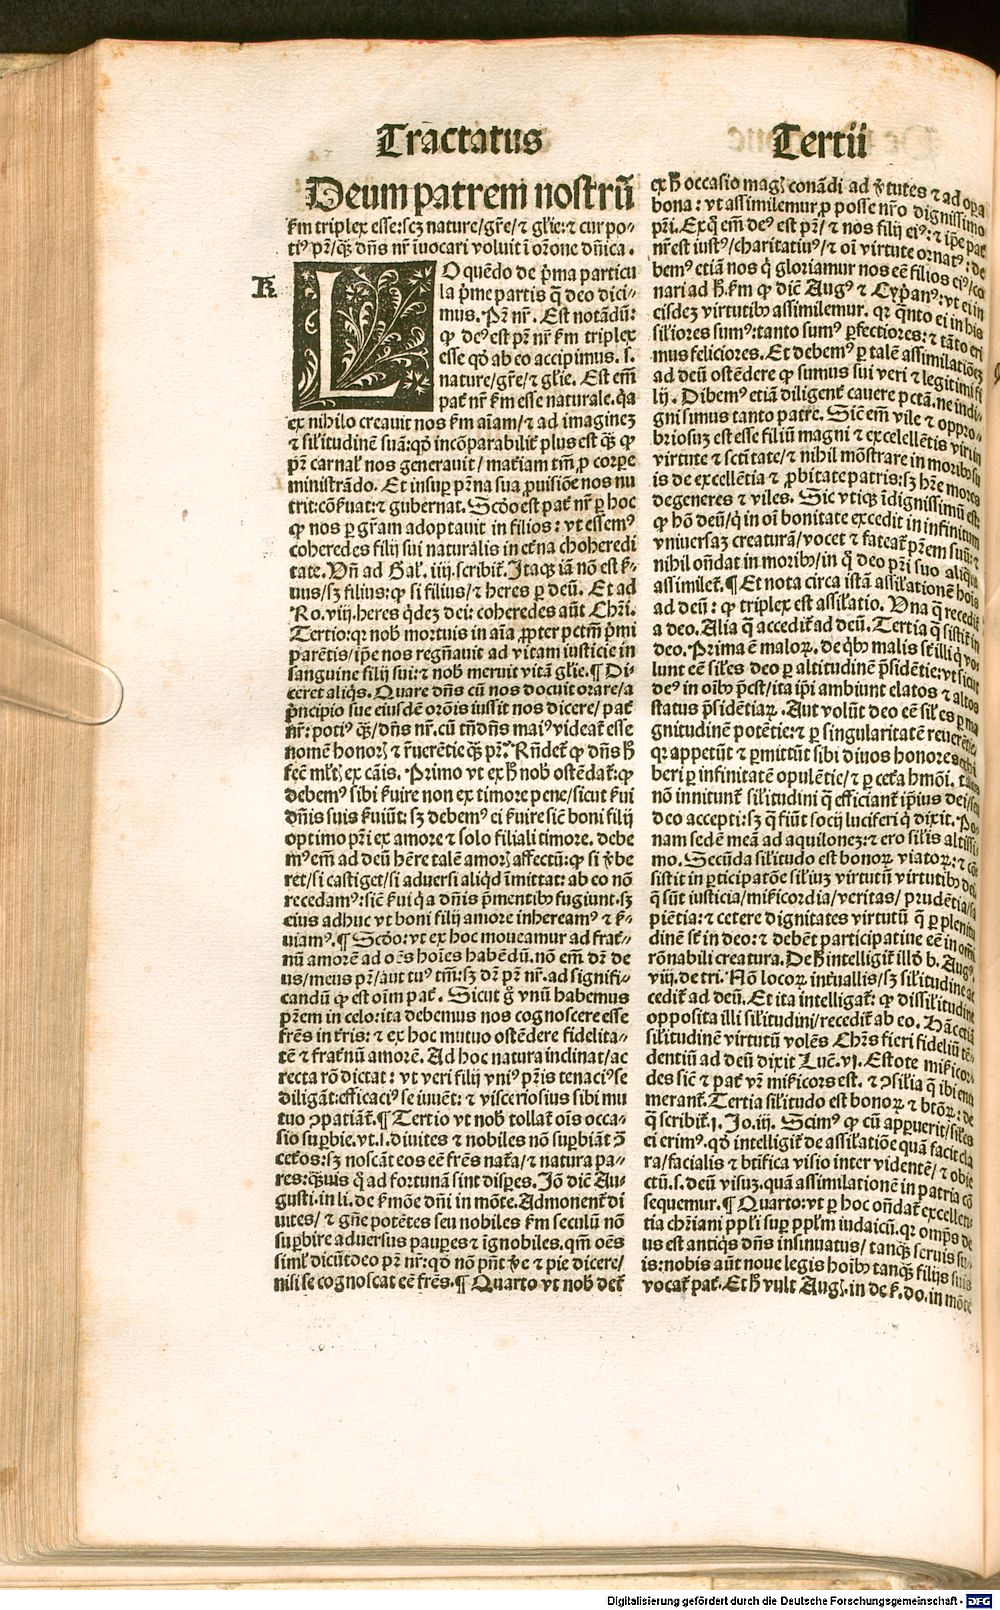 Tractatus Tertii
Deum patrem nostrū
ẜm triplex esse: scꝫ nature/gr̄e/ ⁊ gl'ie: ⁊ cur po⸗
tiꝰ pr̄/qꝫ dn̄s nr̄ īuocari voluit ī or̄one dn̄ica.
K
LO quēdo de p̄ma particu
la p̄me partis q̄ deo dici⸗
mus. Pr̄ nr̄. Est notādū:
ꝙ deꝰ est pr̄ nr̄ ẜm triplex
esse qđ ab eo accipimus. s.
nature/gr̄e/ ⁊ gl'ie. Est em̄
pat̄ nr̄ ẜm esse naturale. q̄a
ex nihilo creauit nos ẜm aīam/ ⁊ ad imaginez
⁊ sil'itudinē suā: qđ incōparabilit̄ plus est qꝫ ꝙ
pr̄ carnal' nos generauit/ mat̄iam tm̄ ꝓ corpe
ministrādo. Et insuꝑ pr̄na sua ꝓuisiōe nos nu
trit: cōẜuat: ⁊ gubernat. Scđo est pat̄ nr̄ ꝑ hoc
ꝙ nos ꝑ gr̄am adoptauit in filios: vt essemꝰ
coheredes filij sui naturalis in et̄na choheredi
tate. Vn̄ ad Gal'. iiij. scribit̄. Itaqꝫ iā nō est ẜ⸗
uus/ sꝫ filius: ꝙ si filius/ ⁊ heres ꝑ deū. Et ad
Ro. viij. heres q̄dez dei: coheredes aūt Chr̄i.
Tertio: qꝛ nob̄ mortuis in aīa ꝓpter pctm̄ p̄mi
parētis/ ip̄e nos regn̄auit ad vitam iusticie in
sanguine filij sui: ⁊ nob̄ meruit vitā gl'ie. ¶ Di⸗
ceret aliqs. Quare dn̄s cū nos docuit orare/ a
p̄ncipio sue eiusdē or̄ois iussit nos dicere/ pat̄
nr̄: potiꝰ qꝫ/dn̄s nr̄. cū tn̄ dn̄s maiꝰ videat̄ esse
nomē honorꝭ ⁊ r̄uerētie qꝫ pr̄? Rn̄det̄ ꝙ dn̄s ħ
fec̄ ml'tꝭ ex cāis. Primo vt ex ħ nob̄ ostēdat̄: ꝙ
debemꝰ sibi ẜuire non ex timore pene/ sicut ẜui
dn̄is suis ẜuiūt: sꝫ debemꝰ ei ẜuire sic̄ boni filij
optimo pr̄i ex amore ⁊ solo filiali timore. debe
mꝰ em̄ ad deū hēre talē amorꝭ affectū: ꝙ si v̄be
ret/si castiget/si aduersi aliqd īmittat: ab eo nō
recedamꝰ: sic̄ ẜui q̄a dn̄is p̄mentibꝰ fugiunt. sꝫ
eius adhuc vt boni filij amore inhereamꝰ ⁊ ẜ⸗
uiamꝰ. ¶ Scđo: vt ex hoc moueamur ad frat̄⸗
nū amorē ad oēs hoīes habēdū. nō em̄ dr̄ de
us/meus pr̄/aut tuꝰ tm̄: sꝫ dr̄ pr̄ nr̄. ad signifi⸗
candū ꝙ est oīm pat̄. Sicut g̊ vnū habemus
pr̄em in celo: ita debemus nos cognoscere esse
fr̄es in t̄ris: ⁊ ex hoc mutuo ostēdere fidelita⸗
tē ⁊ frat̄nū amorē. Ad hoc natura inclinat/ac
recta rō dictat: vt veri filij vniꝰ pr̄is tenaciꝰ se
diligāt: efficaciꝰ se iuuēt: ⁊ visceriosius sibi mu
tuo ꝯpatiāt̄. ¶ Tertio vt nob̄ tollat̄ oīs occa⸗
sio suꝑbie. vt. s. diuites ⁊ nobiles nō suꝑbiāt ꝯ̄
cet̄os: sꝫ noscāt eos eē fr̄es nat̄a/ ⁊ natura pa⸗
res: qꝫuis q̄ ad fortunā sint disꝑes. Jō dic̄ Au⸗
gusti. in li. de ẜmōe dn̄i in mōte. Admonent̄ di
uites/ ⁊ gn̄e potētes seu nobiles ẜm seculū nō
suꝑbire aduersus pauꝑes ⁊ ignobiles. qm̄ oēs
siml' dicūt deo pr̄ nr̄: qđ nō pn̄t v̄e ⁊ pie dicere/
nisi se cognoscat eē fr̄es. ¶ Quarto vt nob̄ det̄
ex ħ occasio magꝭ conādi ad v̄tutes ⁊ ad oꝑa
bona: vt assimilemur ꝓ posse nr̄o dignissimo
pr̄i. Ex q̄ em̄ deꝰ est pr̄/ ⁊ nos filij eiꝰ: ⁊ ip̄e pat̄
nr̄ est iustꝰ/charitatiuꝰ/ ⁊ oī virtute ornatꝰ: de
bemꝰ etiā nos q̄ gloriamur nos eē filios eiꝰ/ co
nari ad ħ. ẜm ꝙ dic̄ Augꝰ ⁊ Cyp̄anꝰ: vt ei in
eisdez virtutibꝰ assimilemur. qꝛ q̄nto ei in his
siliores sumꝰ: tanto sumꝰ ꝑfectiores: ⁊ tāto eri
mus feliciores. Et debemꝰ ꝑ talē assimilatiōez
ad deū ostēdere ꝙ sumus sui veri ⁊ legitimi fi
lij. Dibemꝰ etiā diligent̄ cauere pctā. ne indi⸗
gni simus tanto patre. Sic̄ em̄ vile ⁊ oppro⸗
briosuz est esse filiū magni ⁊ excelellētis virum
virtute ⁊ sc̄titate/ ⁊ nihil mōstrare in moribꝰ su
is de excellētia ⁊ ꝓbitate patris: sꝫ hr̄e mores
degeneres ⁊ viles. Sic vtiqꝫ īdignissimū est:
ꝙ hō deū/q̄ in oī bonitate excedit in infinitum
vniuersaz creaturā/ vocet ⁊ fateat̄ pr̄em suū: ⁊
nihil on̄dat in moribꝰ/ in q̄ deo pr̄i suo aliqua
assimilet̄. ¶ Et nota circa istā assil'ationē hoīs
ad deū: ꝙ triplex est assil'atio. Vna q̄ recedit̄
a deo. Alia q̄ accedit̄ ad deū. Tertia q̄ sistit̄ in
deo. Prima ē maloꝝ. de qbꝰ malis st̄ illi q̄ vo⸗
lunt eē sil'es deo ꝑ altitudinē p̄sidētie: vt sicut
deꝰ in oībꝰ p̄est/ ita ip̄i ambiunt elatos ⁊ altos
status p̄sidētiaꝝ. Aut volūt deo eē sil'es ꝑ ma
gnitudinē potētie: ⁊ ꝑ singularitatē reuerētie/
qꝛ appetūt ⁊ ꝑmittūt sibi diuos honores exhi
beri ꝑ infinitatē opulētie/ ⁊ ꝑ cet̄a hmōi. tales
nō innitunt̄ sil'itudini q̄ efficiant̄ ip̄ius dei/
deo accepti: sꝫ q̄ fiūt socij luciferi q̄ dixit. Po
nam sedē meā ad aquilonez: ⁊ ero sil'is altissi
mo. Secūda sil'itudo est bonoꝝ viatoꝝ: ⁊ cō
sistit in ꝑticipatōe sil'iuz virtutū virtutibꝰ dei.
q̄ sūt iusticia/mīẜicordia/veritas/ prudētia/sa
piētia: ⁊ cetere dignitates virtutū q̄ ꝑ plenitu
dinē st̄ in deo: ⁊ debēt participatiue eē in om̄i
rōnabili creatura. De ħ intelligit̄ illđ b. Augꝰ.
viij. de tri. Nō locoꝝ int̄uallis/sꝫ sil'itudine ac
cedit̄ ad deū. Et ita intelligat̄: ꝙ dissil'itudine
opposita illi sil'itudini/recedit̄ ab eo. Hāc etiā
sil'itudinē virtutū volēs Chr̄s fieri fideliū tē⸗
dentiū ad deū dixit Luc̄. vi. Estote miẜicor⸗
des sic̄ ⁊ pat̄ vr̄ miẜicors est. ⁊ ꝯsilia q̄ ibi enu
merant̄. Tertia sil'itudo est bonoꝝ ⁊ btōꝝ: de
q̄ scribit̄. j. Jo. iij. Scimꝰ ꝙ cū apparuerit/ sil'es
ei erimꝰ. qđ intelligit̄ de assil'atiōe quā facit cla
ra/facialis ⁊ btifica visio inter videntē/ ⁊ obie
ctū. s. deū visuz. quā assimilationē in patria cō
sequemur. ¶ Quarto: vt ꝑ hoc on̄dat̄ excellen⸗
tia chr̄iani ppl'i suꝑ ppl'm iudaicū. qꝛ omps̄ de
us est antiqs dn̄s insinuatus/ tanqꝫ seruis su⸗
is: nobis aūt noue legis hoībꝰ tanqꝫ filijs suis
vocat̄ pat̄. Et ħ vult Augꝰ. in de ẜ. do. in mōte
Digitalisierung gefördert durch die Deutsche Forschungsgemeinschaft - DFG